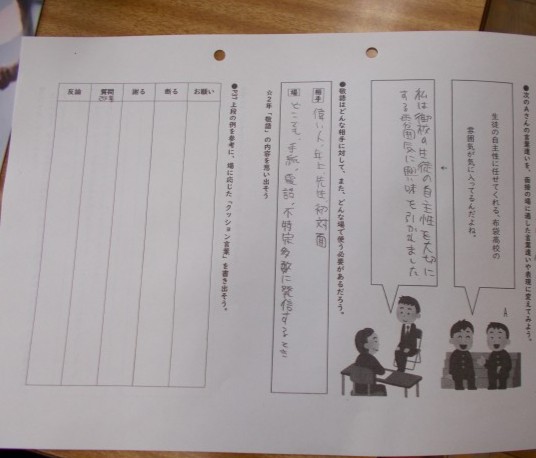 ●次のAさんの言葉遣いを、面接の場に適した言葉遣いや表現に変えてみよう。
生徒の自主性に任せてくれる、布袋高校の
雰囲気が気に入ってるんだよね。
A
↓
私は御校の生徒の自主性を大切に
する雰囲気に興味を引かれました
●敬語はどんな相手に対して、また、どんな場で使う必要があるだろう。
相手 偉い人、年上、先生、初対面
場 どこでも、手紙、電話、不特定多数に発信するとき
☆2年「敬語」の内容を思い出そう
●P71上段の例を参考に、場に応じた「クッション言葉」を書き出そう。
お願い
断る
謝る
質問
反論